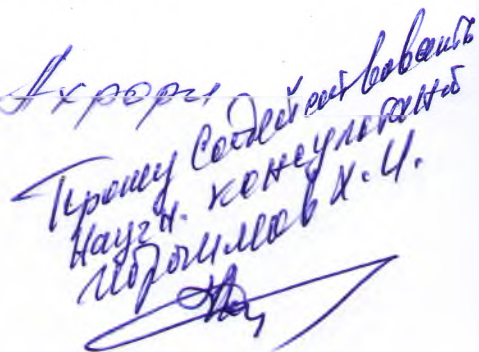 Ахрори
Прошу Содействовать
Научн. консультант
Иброгимов Х.И.